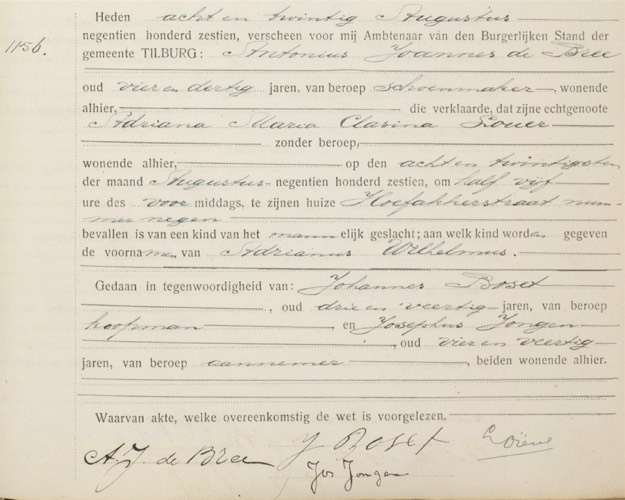 1156.
Heden acht en twintig Augustus
negentien honderd zestien, verscheen voor mij Ambtenaar van den Burgerlijken Stand der
gemeente TILBURG: Antonius Joannes de Bree
oud vier en dertig jaren, van beroep schoenmaker, wonende
alhier, die verklaarde, dat zijne echtgenoote
Adriana Maria Clasina Louer
zonder beroep,
wonende alhier, op den acht en twintigsten
der maand Augustus negentien honderd zestien, om half vijf
ure des voor middags, te zijnen huize Hoefakkerstraat num-
mer negen
bevallen is van een kind van het mannelijk geslacht; aan welk kind worden gegeven
de voornamen van Adrianus Wilhelmus.
Gedaan in tegenwoordigheid van: Johannes Boset
, oud drie en veertig jaren, van beroep
koopman en Josephus Jongen
, oud vier en veertig
jaren, van beroep aannemer, beiden wonende alhier.
Waarvan akte, welke overeenkomstig de wet is voorgelezen.
A.J. de Bree J Boset
Jos Jongen